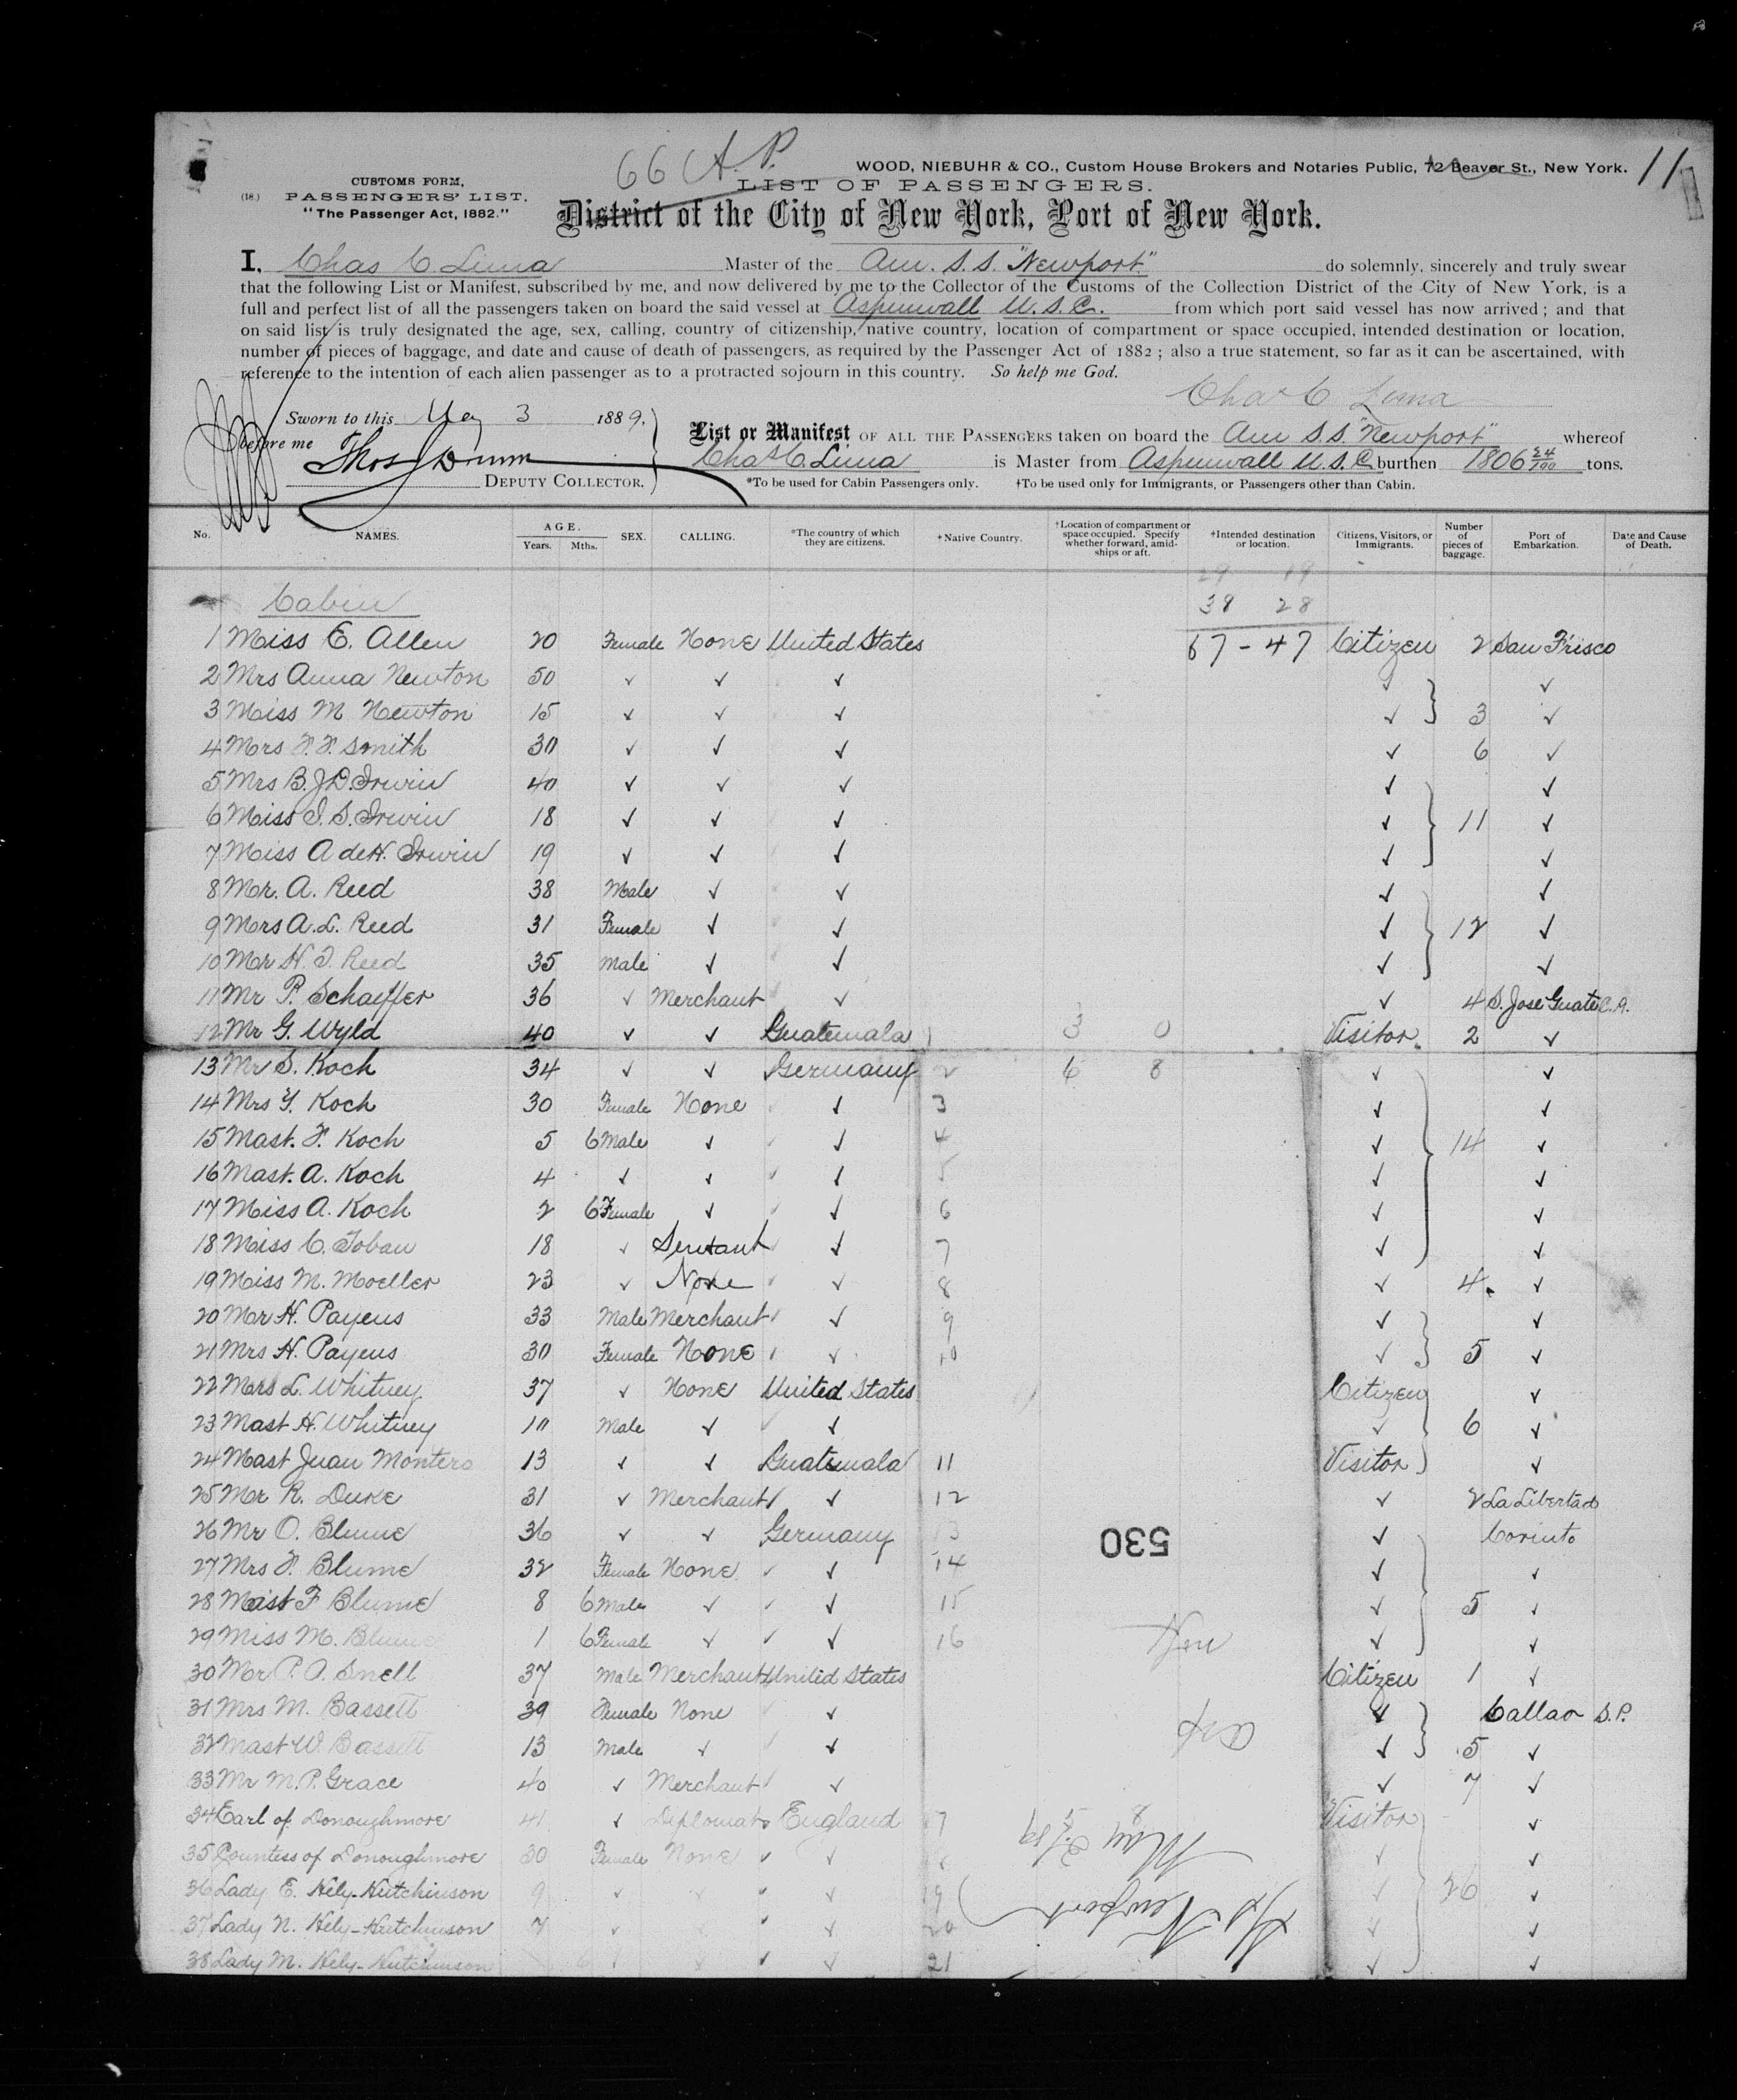 66 A. P.
WOOD, NIEBUHR & CO., Custom House Brokers and Notaries Public, 72 Beaver St., New York. 11
CUSTOMS FORM,
(18.) PASSENGERS' LIST.
"The Passenger Act, 1882."
LIST OF PASSENGERS.
District of the City of New York, Port of New York.
I, Chas C. Lima Master of the Am. S. S. "Newport" do solemnly, sincerely and truly swear
that the following List or Manifest, subscribed by me, and now delivered by me to the Collector of the Customs of the Collection District of the City of New York, is a
full and perfect list of all the passengers taken on board the said vessel at Aspinwall U. S. C. from which port said vessel has now arrived; and that
on said list is truly designated the age, sex, calling, country of citizenship, native country, location of compartment or space occupied, intended destination or location,
number of pieces of baggage, and date and cause of death of passengers, as required by the Passenger Act of 1882; also a true statement, so far as it can be ascertained, with
reference to the intention of each alien passenger as to a protracted sojourn in this country. So help me God.
Chas C Lima
Sworn to this May 3 1889.
before me Thos J Dunn
DEPUTY COLLECTOR.
List or Manifest OF ALL THE PASSENGERS taken on board the Am S. S. "Newport" whereof
Chas C. Lima is Master from Aspinwall U. S. C. burthen 1806 24/100 tons.
*To be used for Cabin Passengers only. †To be used only for Immigrants, or Passengers other than Cabin.
No. NAMES. AGE. Years. Mths. SEX. CALLING. *The country of which they are citizens. †Native Country. †Location of compartment or space occupied. Specify whether forward, amidships or aft. †Intended destination or location. Citizens, Visitors, or Immigrants. Number of pieces of baggage. Port of Embarkation. Date and Cause of Death.
29 19
Cabin 38 28
1 Miss E. Allen 20 Female None United States 67 - 47 Citizen 2 San Frisco
2 Mrs Anna Newton 50 ✓ ✓ ✓ ✓ ✓
3 Miss M Newton 15 ✓ ✓ ✓ ✓ 3 ✓
4 Mrs F. F. Smith 30 ✓ ✓ ✓ ✓ 6 ✓
5 Mrs B. J. D. Irwin 40 ✓ ✓ ✓ ✓ ✓
6 Miss I. S. Irwin 18 ✓ ✓ ✓ ✓ 11 ✓
7 Miss A de H. Irwin 19 ✓ ✓ ✓ ✓ ✓
8 Mr. A. Reed 38 Male ✓ ✓ ✓ ✓
9 Mrs A. L. Reed 31 Female ✓ ✓ ✓ 12 ✓
10 Mr H. I. Reed 35 male ✓ ✓ ✓ ✓
11 Mr P. Schaeffer 36 ✓ Merchant ✓ ✓ 4 S. Jose Guate C. A.
12 Mr G. Wyld 40 ✓ ✓ Guatemala 1 3 0 Visitor 2 ✓
13 Mr S. Koch 34 ✓ ✓ Germany 2 6 8 ✓ ✓
14 Mrs Y. Koch 30 Female None ✓ 3 ✓ ✓
15 Mast. F. Koch 5 6 Male ✓ ✓ 4 ✓ 14 ✓
16 Mast. A. Koch 4 ✓ ✓ ✓ 5 ✓ ✓
17 Miss A. Koch 2 6 Female ✓ ✓ 6 ✓ ✓
18 Miss C. Toban 18 ✓ Servant ✓ 7 ✓ ✓
19 Miss M. Moeller 23 ✓ None ✓ 8 ✓ 4 ✓
20 Mr H. Payens 33 Male Merchant ✓ 9 ✓ ✓
21 Mrs H. Payens 30 Female None ✓ 10 ✓ 5 ✓
22 Mrs L. Whitney 37 ✓ None United States Citizen ✓
23 Mast H. Whitney 10 Male ✓ ✓ ✓ 6 ✓
24 Mast Juan Montero 13 ✓ ✓ Guatemala 11 Visitor ✓
25 Mr R. Duke 31 ✓ Merchant ✓ 12 ✓ 2 La Libertad
26 Mr O. Blume 36 ✓ ✓ Germany 13 530 ✓ Corinto
27 Mrs F. Blume 32 Female None ✓ 14 ✓ ✓
28 Mast F Blume 8 6 Male ✓ ✓ 15 ✓ 5 ✓
29 Miss M. Blume 1 6 Female ✓ ✓ 16 ✓ ✓
30 Mr P. O. Snell 37 Male Merchant United States Citizen 1 ✓
31 Mrs M. Bassett 39 Female None ✓ ✓ Callao S. P.
32 Mast W. Bassett 13 Male ✓ ✓ ✓ 5 ✓
33 Mr M. P. Grace 40 ✓ Merchant ✓ ✓ 7 ✓
34 Earl of Donoughmore 41 ✓ Diplomat England 17 Visitor ✓
35 Countess of Donoughmore 30 Female None ✓ ✓ ✓
36 Lady E. Hely-Hutchinson 9 ✓ ✓ ✓ 19 ✓ 26 ✓
37 Lady N. Hely-Hutchinson 7 ✓ ✓ 20 ✓ ✓
38 Lady M. Hely-Hutchinson 6 ✓ ✓ ✓ 21 ✓ ✓
SS Newport
May 3/89